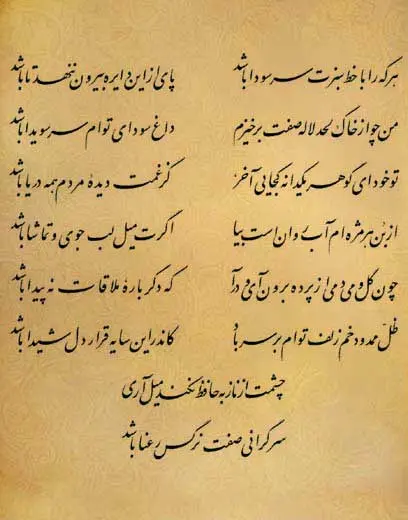 هر که را با خط سبزت سر سودا باشد پای ازین دایره بیرون ننهد تا باشد
من چو از خاک لحد لاله صفت برخیزم داغ سودای توام سر سویدا باشد
تو خود ای گوهر یکدانه کجایی آخر کز غمت دیدهٔ مردم همه دریا باشد
از بن هر مژه‌ام آب روان است بیا اگرت میل لب جوی و تماشا باشد
چون گل و می دمی از پرده برون آی و درآ که دگرباره ملاقات نه پیدا باشد
ظل ممدود خم زلف توام بر سر باد کاندر این سایه قرار دل شیدا باشد
چشمت از ناز به حافظ نکند میل آری
سرگرانی صفت نرگس رعنا باشد